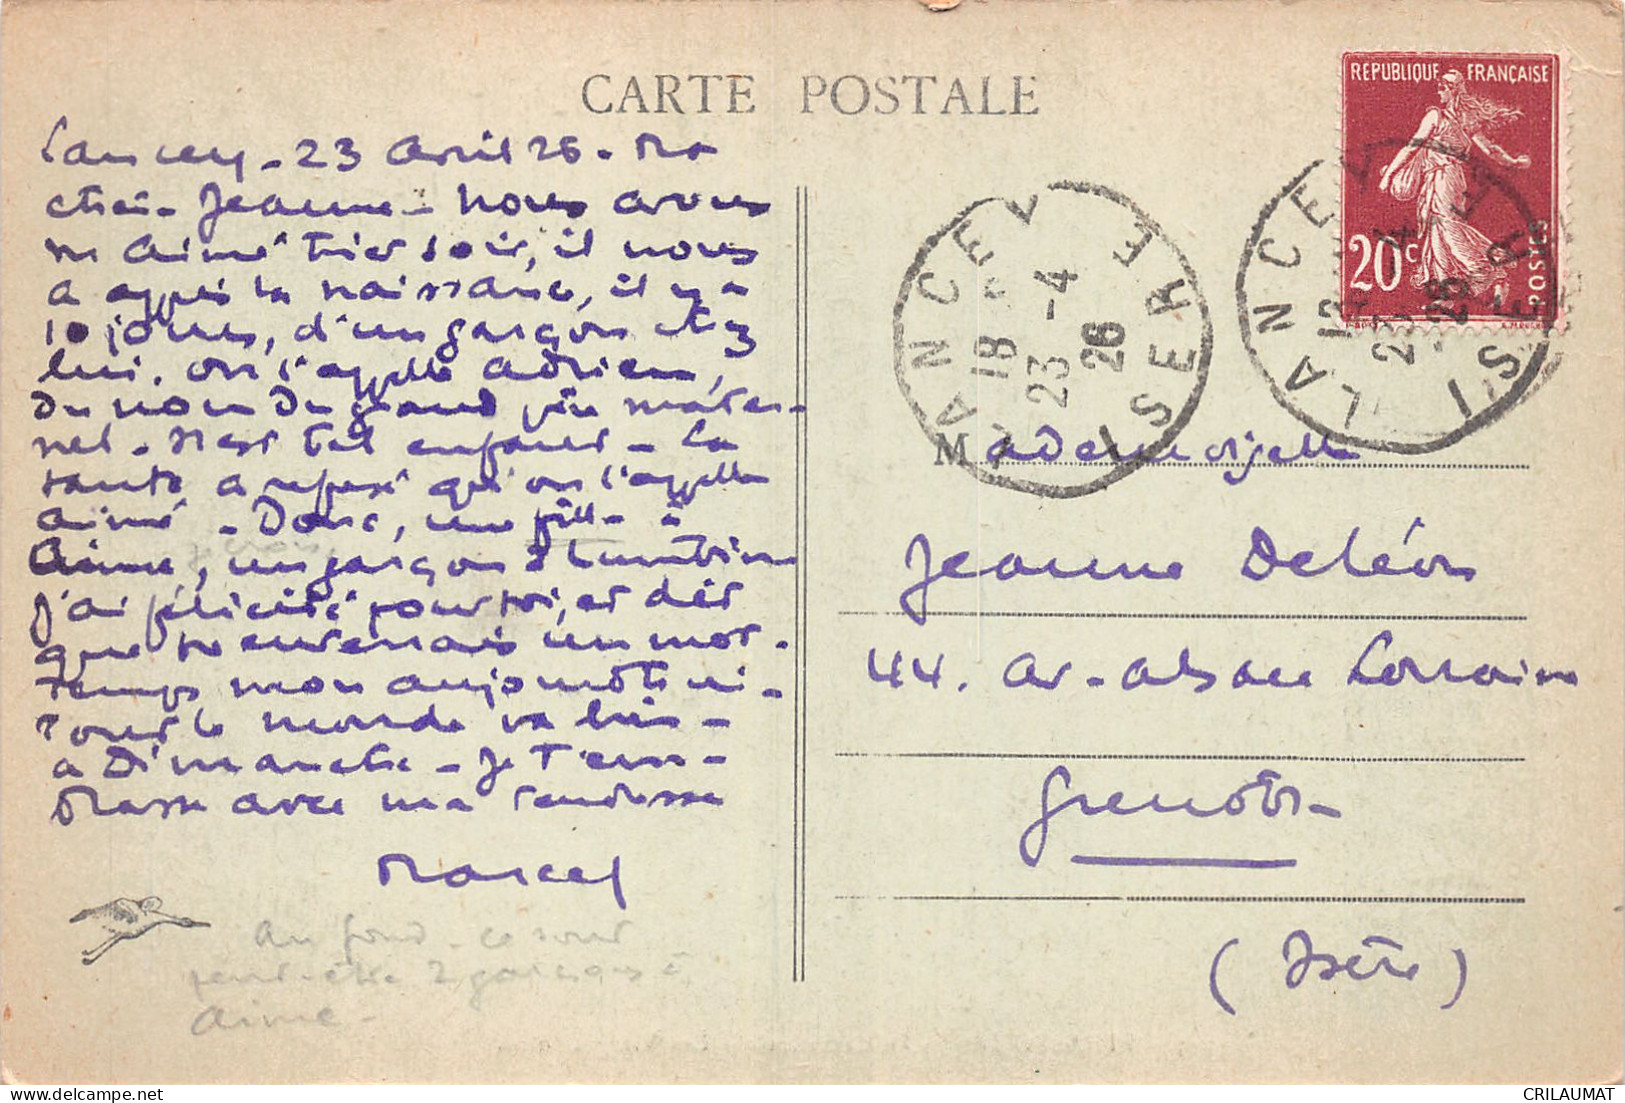 CARTE POSTALE
Lancey - 23 Avril 26 - Ma
chère Jeanne - Nous avons
vu Aimé hier soir, il nous
a appris la naissance, il y a
10 jours, d'un garçon chez
lui. On l'appelle Adrien,
du nom du grand père mater-
nel - N'est tal enfaner - La
tante a refusé qu'on l'appelle
Aimé - Donc, une fille à
Aimé, un garçon à
J'ai félicité pour toi, et dit
que tu enverrais un mot.
Temps mon aujourd'hui -
Tout le monde va bien -
à Dimanche - Je t'em-
brasse avec ma tendresse
Marcel
Au fond - ce sont
peut-être 2 garçons à
Aimé -
REPUBLIQUE FRANÇAISE
20c
POSTES
LANCEY
18
23 -4
26
ISERE
LANCEY
23 -4
26
ISERE
Mademoiselle
Jeanne Deléon
44. Av. Alsace Lorraine
Grenoble
(Isère)
CRILAUMAT